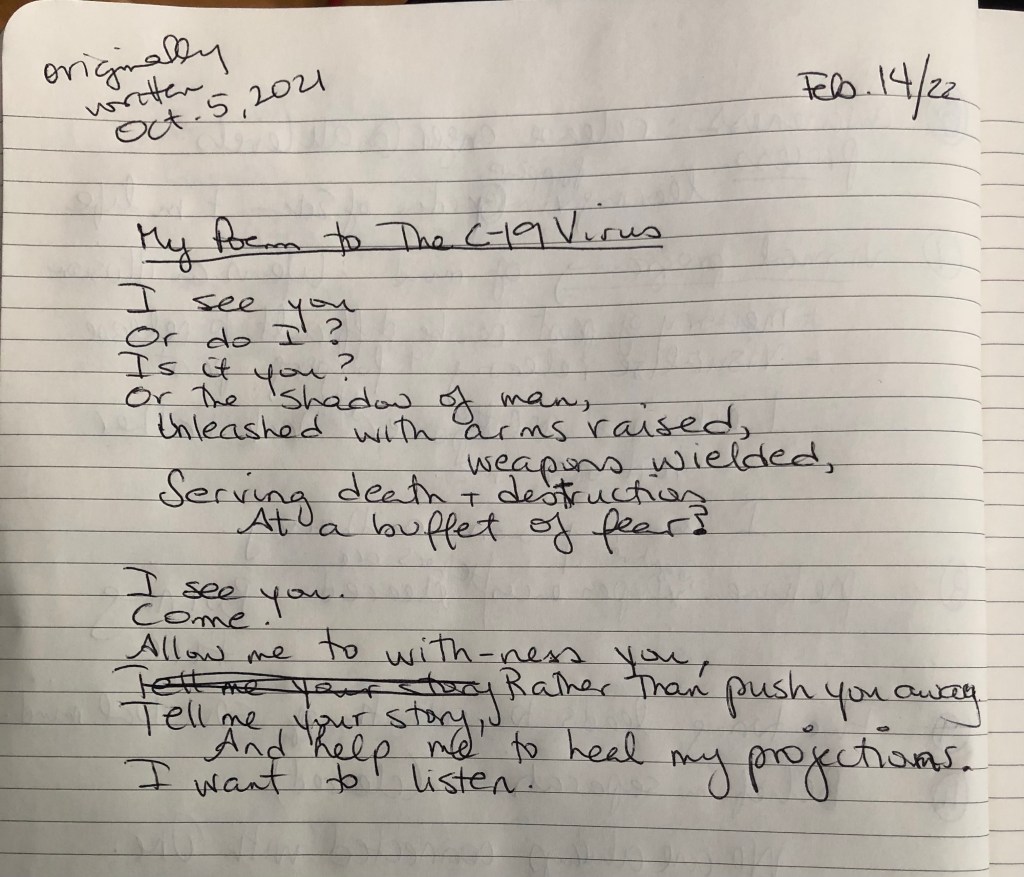 originally
written
Oct. 5, 2021
Feb. 14/22
My Poem to The C-19 Virus
I see you
Or do I?
Is it you?
Or the shadow of man,
Unleashed with arms raised,
weapons wielded,
Serving death + destruction
At a buffet of fear?
I see you.
Come.
Allow me to with-ness you,
Tell me your story Rather Than push you away.
Tell me your story,
And help me to heal my projections.
I want to listen.